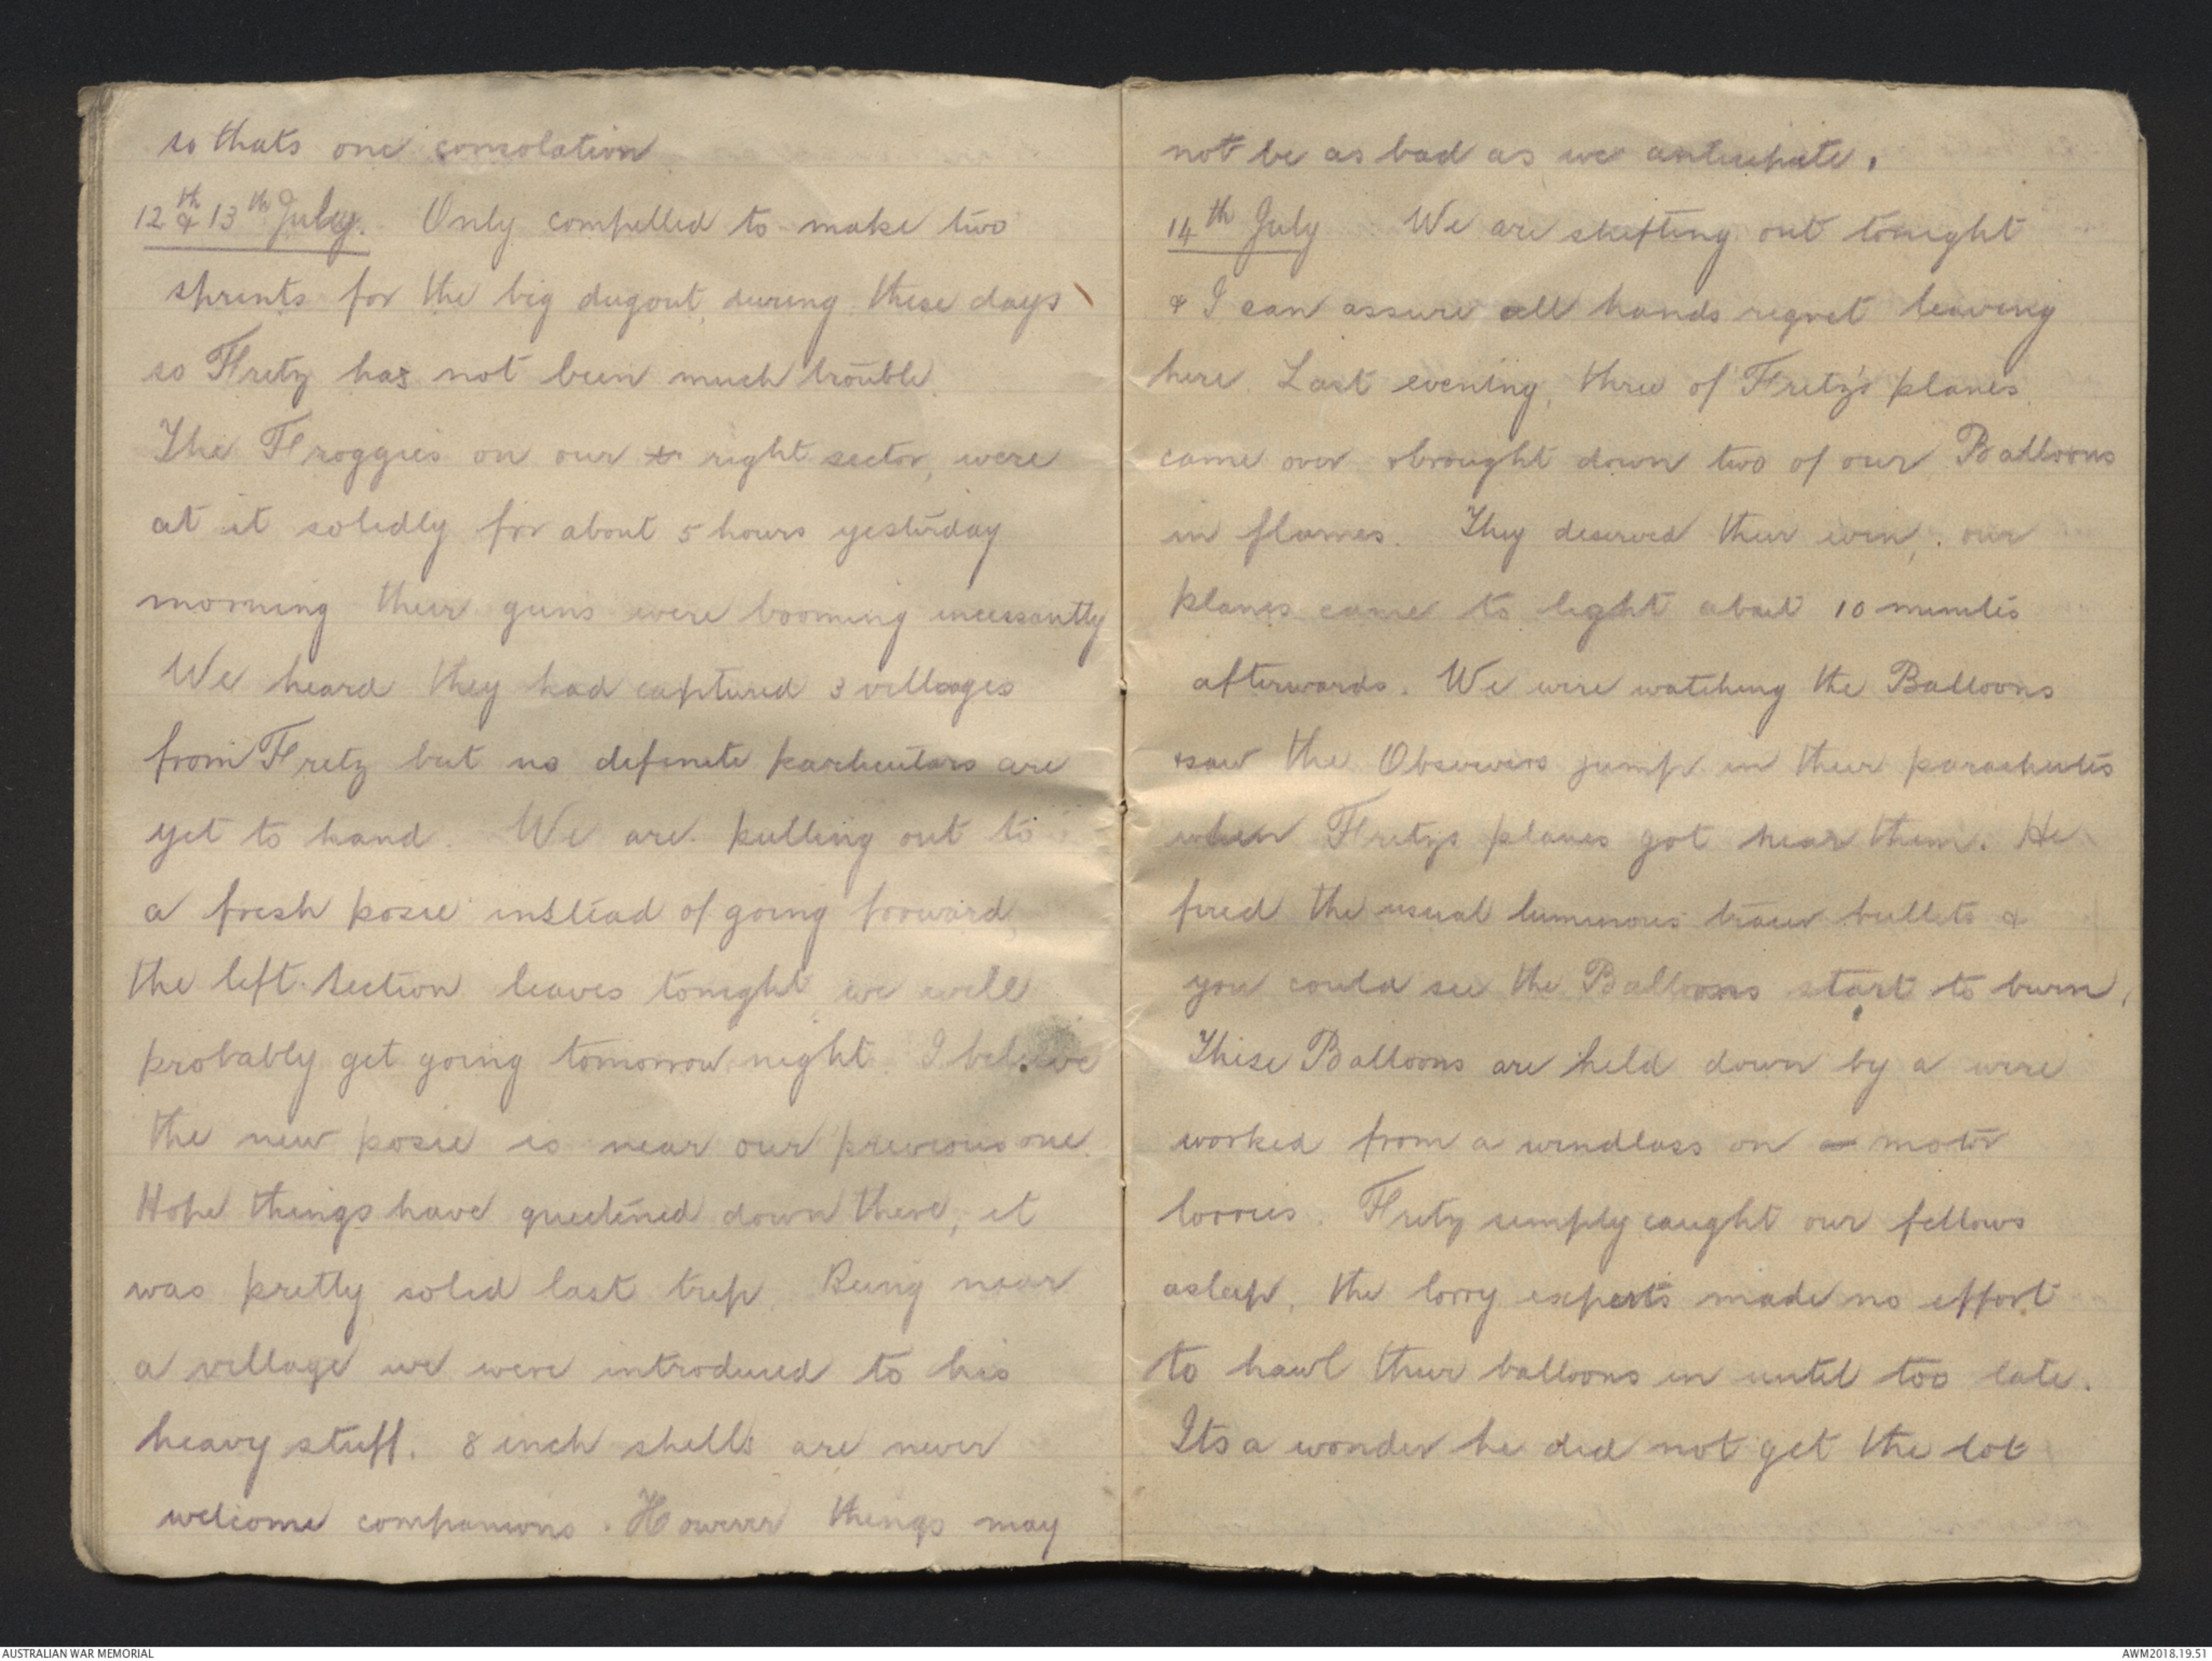 so thats one consolation
12th & 13th July. Only compelled to make two
sprints for the big dugout, during these days
so Fritz has not been much trouble.
The Froggies on our right sector, were
at it solidly for about 5 hours yesterday
morning their guns were booming incessantly
We heard they had captured 3 villages
from Fritz but no definite particulars are
yet to hand. We are pulling out to
a fresh posie instead of going forward,
the left section leaves tonight, we will
probably get going tomorrow night. I believe
the new posie is near our previous one.
Hope things have quietened down there, it
was pretty solid last trip. Being near
a village we were introduced to his
heavy stuff. 8 inch shells are never
welcome companions. However things may
not be as bad as we anticipate.
14th July We are shifting out tonight
& I can assure all hands regret leaving
here. Last evening, three of Fritz's planes
came over & brought down two of our Balloons
in flames. They deserved their win, our
planes came to light about 10 minutes
afterwards. We were watching the Balloons
& saw the Observers jump in their parachutes
when Fritzs planes got near them. He
fired the usual luminous tracer bullets &
you could see the Balloons start to burn,
These Balloons are held down by a wire
worked from a windlass on motor
lorries. Fritz simply caught our fellows
asleep, the lorry experts made no effort
to hawl their balloons in until too late.
Its a wonder he did not get the lot
AUSTRALIAN WAR MEMORIAL
AWM2018.19.51